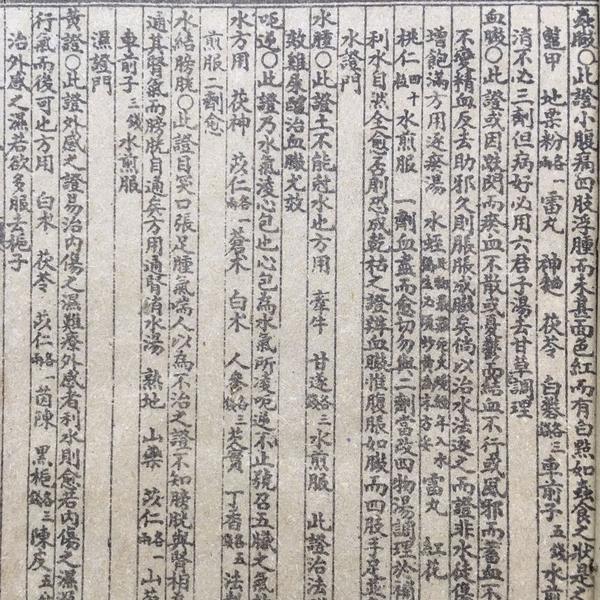 蟲臌○此證小腹痛四肢浮腫而未甚面色紅而有白點如蟲食之狀是之
鱉甲 地栗粉各一兩 雷丸 神麯 茯苓 白礬各三錢 車前子五錢水煎
消不必三劑但病好必用六君子湯去甘草調理
血臌○此證或因跌閃而瘀血不散或憂鬱而結血不行或風邪而畜血不
不變精血反去助邪久則脹脹成臌矣倘以治水法逐之而證非水徒傷
增飽滿方用逐瘀湯 水蛭 雷丸 紅花
桃仁四十粒 水煎服 一劑血盡而愈切勿與二劑當改四物湯調理於補
利水自然全愈否則恐成乾枯之證辨血臌惟腹脹如臌而四肢手足並
水證門
水腫○此證土不能尅水也方用 牽牛 甘遂各三錢水煎服 此證治法
敗難尿隨治血臌尤效
呃逆○此證乃水氣凌心包也心包為水氣所凌呃逆不止號召五臟之氣
水方用 茯神 苡仁各一兩 蒼朮 白朮 人參各三錢 芡實 丁香各五 法製
煎服二劑愈
水結膀胱○此證目突口張足腫氣喘人以為不治之證不知膀胱與腎相
適其腎氣而膀胱自通矣方用通腎消水湯 熟地 山藥 苡仁各一兩 山
車前子三錢 水煎服
濕證門
黃證○此證外感之證易治內傷之濕難療外感者利水則愈若內傷之濕
行氣而後可也方用 白朮 茯苓 苡仁各一兩 茵陳 黑梔各三錢 陳皮五
治外感之濕若欲多服去梔子